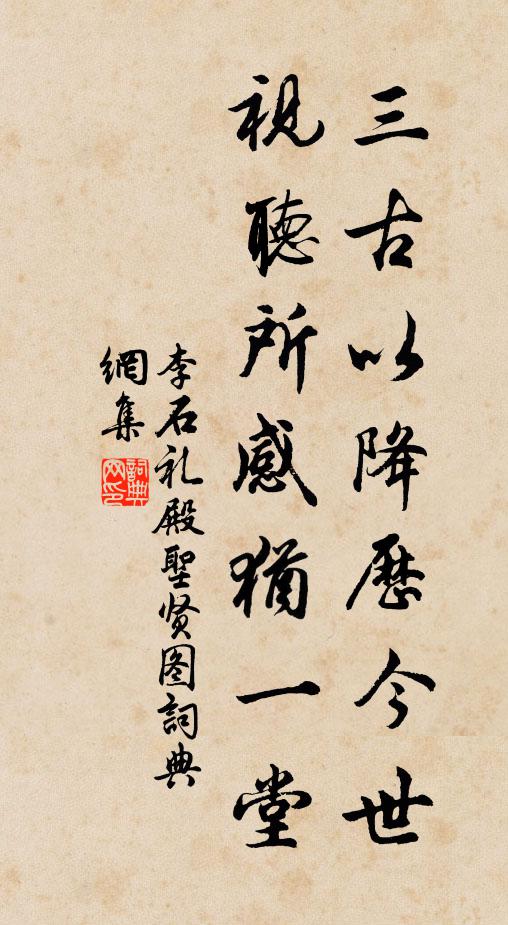 三古以降歷今世
視聽所感猶一堂
李石礼殿聖贤图詞典
網集
詞典網印